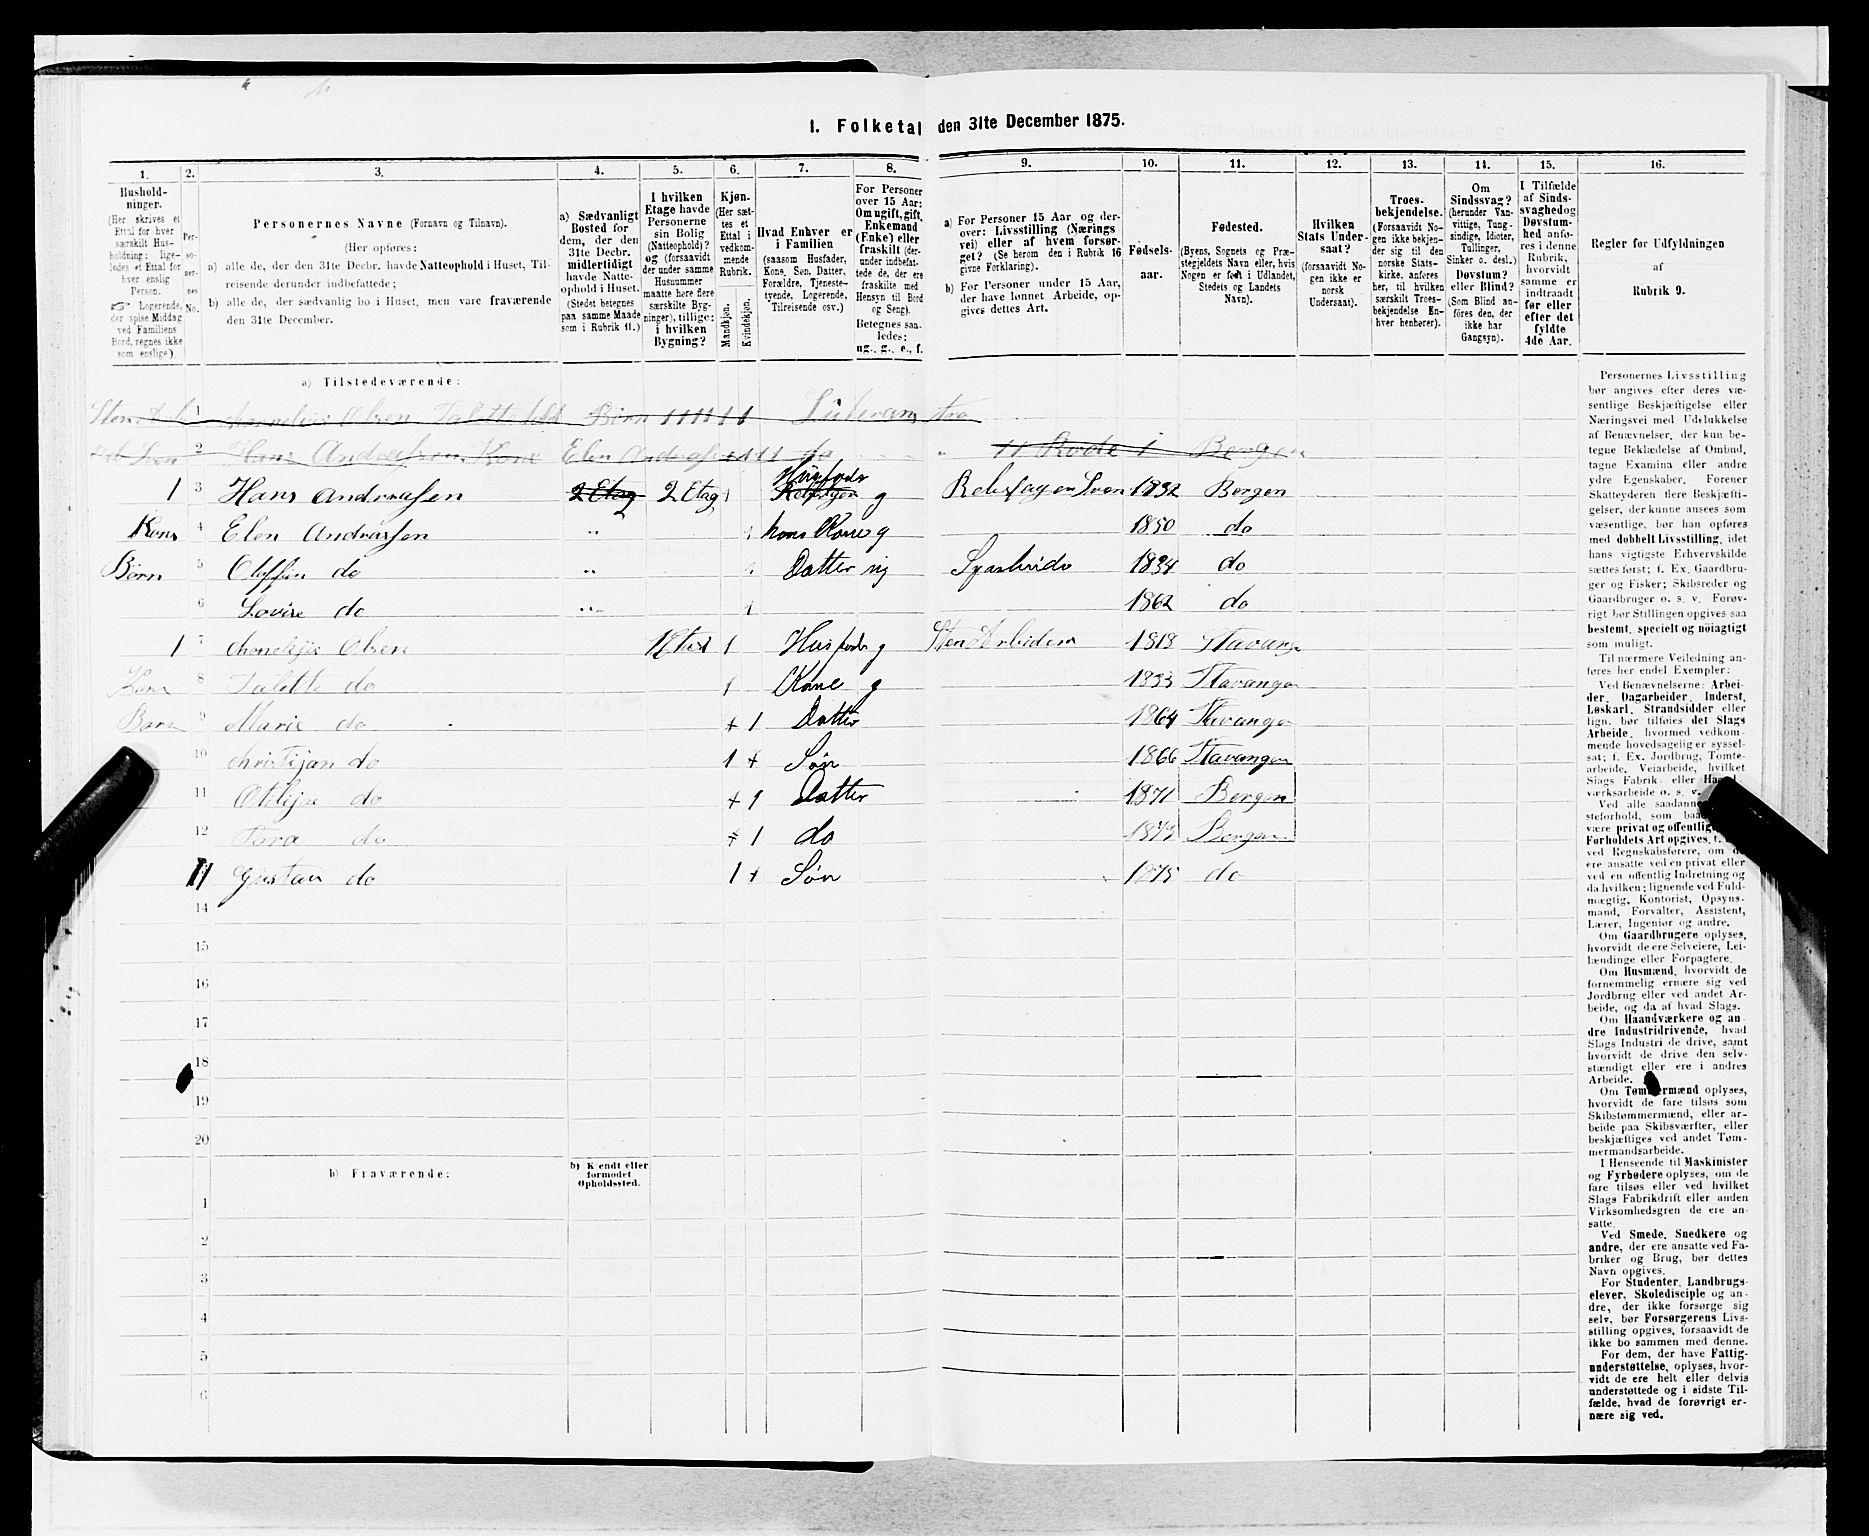 1. Folketal den 31te December 1875.
1. 2. 3. 4. 5. 6. 7. 8. 9. 10. 11. 12. 13. 14. 15. 16.
Hushold-
ninger.
(Her skrives et
Ettal for hver
særskilt Hus-
holdning: lige-
ledes et Ettal for
hver enslig
Person.
Logerende,
der spise Middag
ved Familiens
Bord, regnes ikke
som enslige).
Per-
so-
ner-
nes
No.
Personernes Navne (Fornavn og Tilnavn).
(Her opføres:
a) alle de, der den 31te Decbr. havde Natteophold i Huset, Til-
reisende derunder indbefattede;
b) alle de, der sædvanlig bo i Huset, men vare fraværende
den 31te December.
a) Sædvanligt
Bosted for
dem, der den
31te Decbr.
midlertidigt
havde Natte-
ophold i Huset.
(Stedet betegnes
paa samme Maade
som i Rubrik 11.)
I hvilken
Etage havde
Personerne
sin Bolig
(Natteophold)?
og (forsaavidt
der under samme
Husnummer
maatte høre flere
særskilte Byg-
ninger), tillige:
i hvilken
Bygning?
Kjøn.
(Her sæt-
tes et
Ettal i
vedkom-
mende
Rubrik.
Mandkjøn.
Kvindekjøn.
Hvad Enhver er
i Familien
(saasom Husfader,
Kone, Søn, Datter,
Forældre, Tjeneste-
tyende, Logerende,
Tilreisende osv.)
For Personer
over 15 Aar:
Om ugift, gift,
Enkemand
(Enke) eller
fraskilt (der-
under indbefat-
tede de, der ere
fraskilte med
Hensyn til Bord
og Seng).
Betegnes saa-
ledes:
ug., g., e., f.
a) For Personer 15 Aar og der-
over: Livsstilling (Nærings
vei) eller af hvem forsør-
get? (Se herom den i Rubrik 16
givne Forklaring).
b) For Personer under 15 Aar,
der have lønnet Arbeide, op-
gives dettes Art.
Fødsels-
aar.
Fødested.
(Byens, Sognets og Præ-
stegjeldets Navn eller, hvis
Nogen er født i Udlandet,
Stedets og Landets
Navn).
Hvilken
Stats Under-
saat?
(forsaavidt No-
gen ikke er
norsk
Undersaat).
Troes-
bekjendelse.
(Forsaavidt No-
gen ikke bekjen-
der sig til den
norske Stats-
kirke, anføres
her, til hvilken
særskilt Troes-
bekjendelse En-
hver henhører).
Om
Sindssvag?
(herunder Van-
vittige, Tung-
sindige, Idioter,
Tullinger,
Sinker o. desl.)
Døvstum?
eller Blind?
(Som Blind an-
føres den, der
ikke har
Gangsyn).
I Tilfælde
af Sinds-
svaghedog
Døvstum-
hed anfø-
res i denne
Rubrik,
hvorvidt
samme er
indtraadt
før eller
efter det
fyldte
4de Aar.
Regler for Udfyldningen
af
Rubrik 9.
a) Tilstedeværende:
1 Olsen Børn 1 1 1 1 1 1
2 Hans Andrassen Kone Elen Andrassen do 11 Rode i Bergen
1 3 Hans Andrassen 2 Etag 2 Etag 1 Husfader g 1832 Bergen
Kone 4 Elen Andrassen " 1 hans Kone g 1850 do
Børn 5 do " 1 Datter ug 1834 do
6 Lovise do " 1 1862 do
1 7 Olsen 1 Husfader g Stenarbeider 1813 Stavanger
Kone 8 do 1 Kone g 1833 Stavanger
Børn 9 Marie do 1 Datter 1864 Stavanger
10 christijan do 1 Søn 1866 Stavanger
11 do 1 Datter 1871 Bergen
12 Tora do 1 do 1873 Bergen
Gustav do 1 Søn 1875 do
14
15
16
17
18
19
20
b) Fraværende:
b) Kjendt eller
formodet
Opholdssted.
1
2
3
4
5
6
Personernes Livsstilling
bør angives efter deres væ-
sentlige Beskjæftigelse eller
Næringsvei med Udelukkelse
af Benævnelser, der kun be-
tegne Beklædelse af Ombud,
tagne Examina eller andre
ydre Egenskaber. Forener
Skatteyderen flere Beskjæfti-
gelser, der kunne ansees som
væsentlige, bør han opføres
med dobbelt Livsstilling, idet
hans vigtigste Erhvervskilde
sættes først; f. Ex. Gaardbru-
ger og Fisker; Skibsreder og
Gaardbruger o. s. v. Forøv-
rigt bør Stillingen opgives saa
bestemt, specielt og nöiagtigt
som muligt.
Til nærmere Veiledning an-
føres her endel Exempler:
Ved Benævnelserne: Arbei-
der, Dagarbeider, Inderst,
Løskarl, Strandsidder eller
lign. bør tilføies det Slags
Arbeide, hvormed vedkom-
mende hovedsagelig er syssel-
sat; f. Ex. Jordbrug, Tomte-
arbeide, Veiarbeide, hvilket
Slags Fabrik- eller
værksarbeide o. s. v.
Ved alle saadanne
steforhold, som
være privat og offentlig,
Forholdets Art opgives,
ved Regnskabsførere, om
ere ansatte ved en privat eller
ved en offentlig Indretning og
da hvilken; lignende ved Fuld-
mægtig, Kontorist, Opsyns-
mand, Forvalter, Assistent,
Lærer, Ingeniør og andre.
Om Gaardbrugere oplyses,
hvorvidt de ere Selveiere, Lei-
lændinge eller Forpagtere.
Om Husmænd, hvorvidt de
fornemmelig ernære sig ved
Jordbrug eller ved andet Ar-
beide, og da af hvad Slags.
Om Haandværkere og an-
dre Industridrivende, hvad
Slags Industri de drive, samt
hvorvidt de drive den selv-
stændigt eller ere i andres
Arbeide.
Om Tømmermænd oplyses,
hvorvidt de fare tilsøs som
Skibstømmermænd, eller ar-
beide paa Skibsværfter, eller
beskjæftiges ved andet Tøm-
mermandsarbeide.
I Henseende til Maskinister
og Fyrbødere oplyses, om de
fare tilsøs eller ved hvilket
Slags Fabrikdrift eller anden
Virksomhedsgren de ere an-
satte.
Ved Smede, Snedkere og
andre, der ere ansatte ved Fa-
briker og Brug, bør dettes
Navn opgives.
For Studenter, Landbrugs-
elever, Skoledisciple og an-
dre, der ikke forsørge sig
selv, bør Forsørgerens Livs-
stilling opgives, forsaavidt de
ikke bo sammen med denne.
For dem, der have Fattig-
understøttelse, oplyses, hvor-
vidt de ere helt eller delvis
understøttede og i sidste Til-
fælde, hvad de forøvrigt er-
nære sig ved.